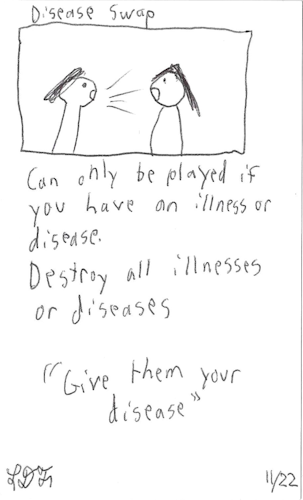 Disease Swap
Can only be played if
you have an illness or
disease.
Destroy all illnesses
or diseases
"Give them your
disease"
11/22